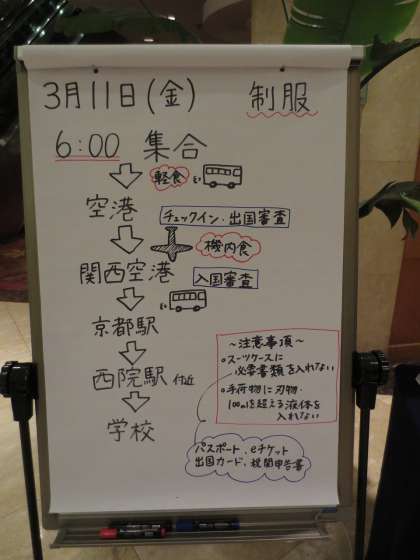 3月11日(金) 制服
6:00 集合
軽食
空港 チェックイン・出国審査
機内食
関西空港 入国審査
京都駅
西院駅 付近
学校
~注意事項~
○スーツケースに
必要書類を入れない
○手荷物に刃物・
100mlを超える液体を
入れない
パスポート、eチケット
出国カード、税関申告書